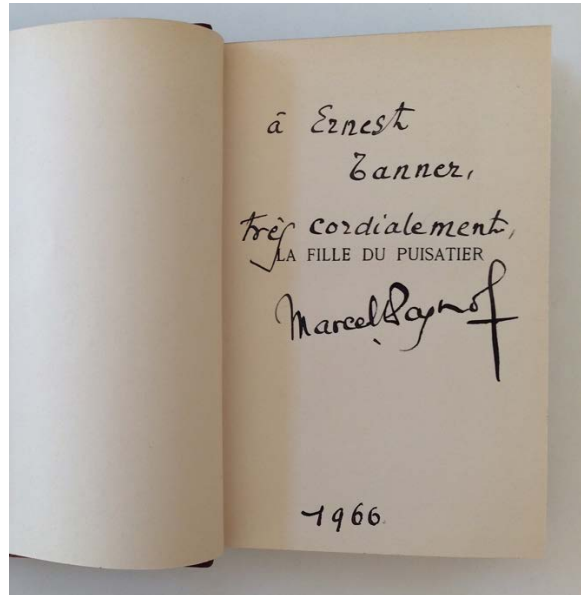 à Ernest
Tanner,
très cordialement,
LA FILLE DU PUISATIER
Marcel Pagnol
1966.